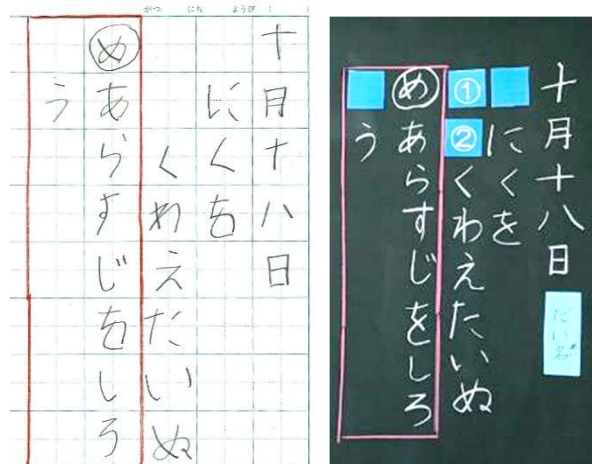 がつ にち ようび ( )
十月十八日
にくを
くわえたいぬ
め あらすじをしろ
う
十月十八日
にくを
①②くわえたいぬ
め あらすじをしろ
う